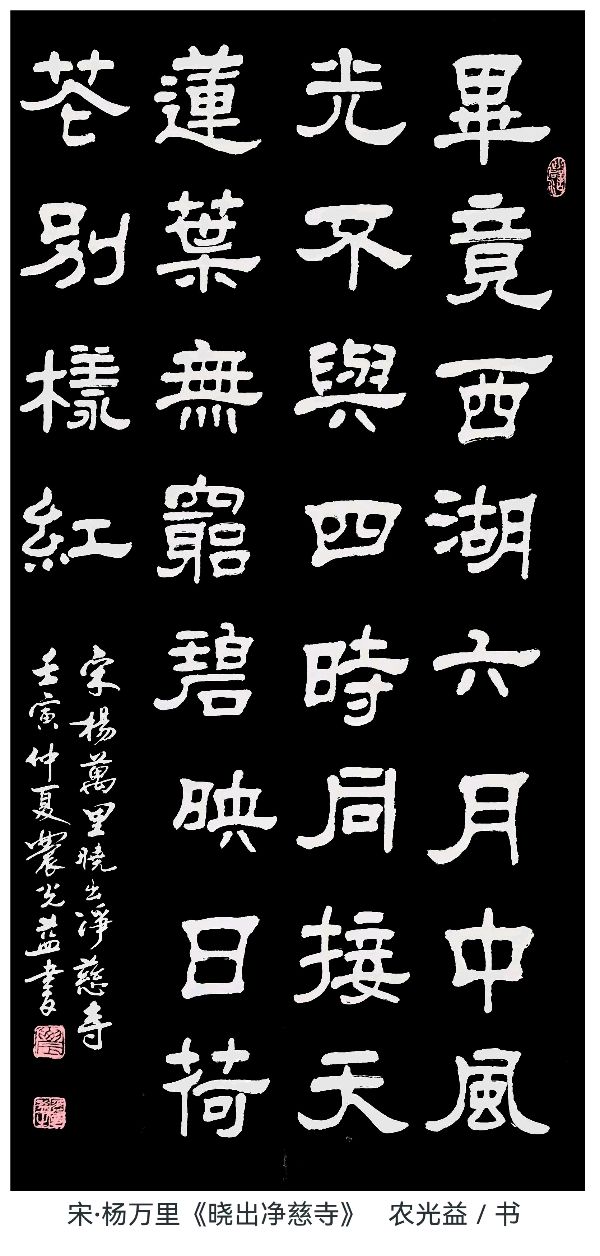 畢竟西湖六月中風
光不與四時同接天
蓮葉無窮碧映日荷
花别樣紅
宋楊萬里曉出淨慈寺
壬寅仲夏農光益書
宋·杨万里《晓出净慈寺》 农光益 / 书